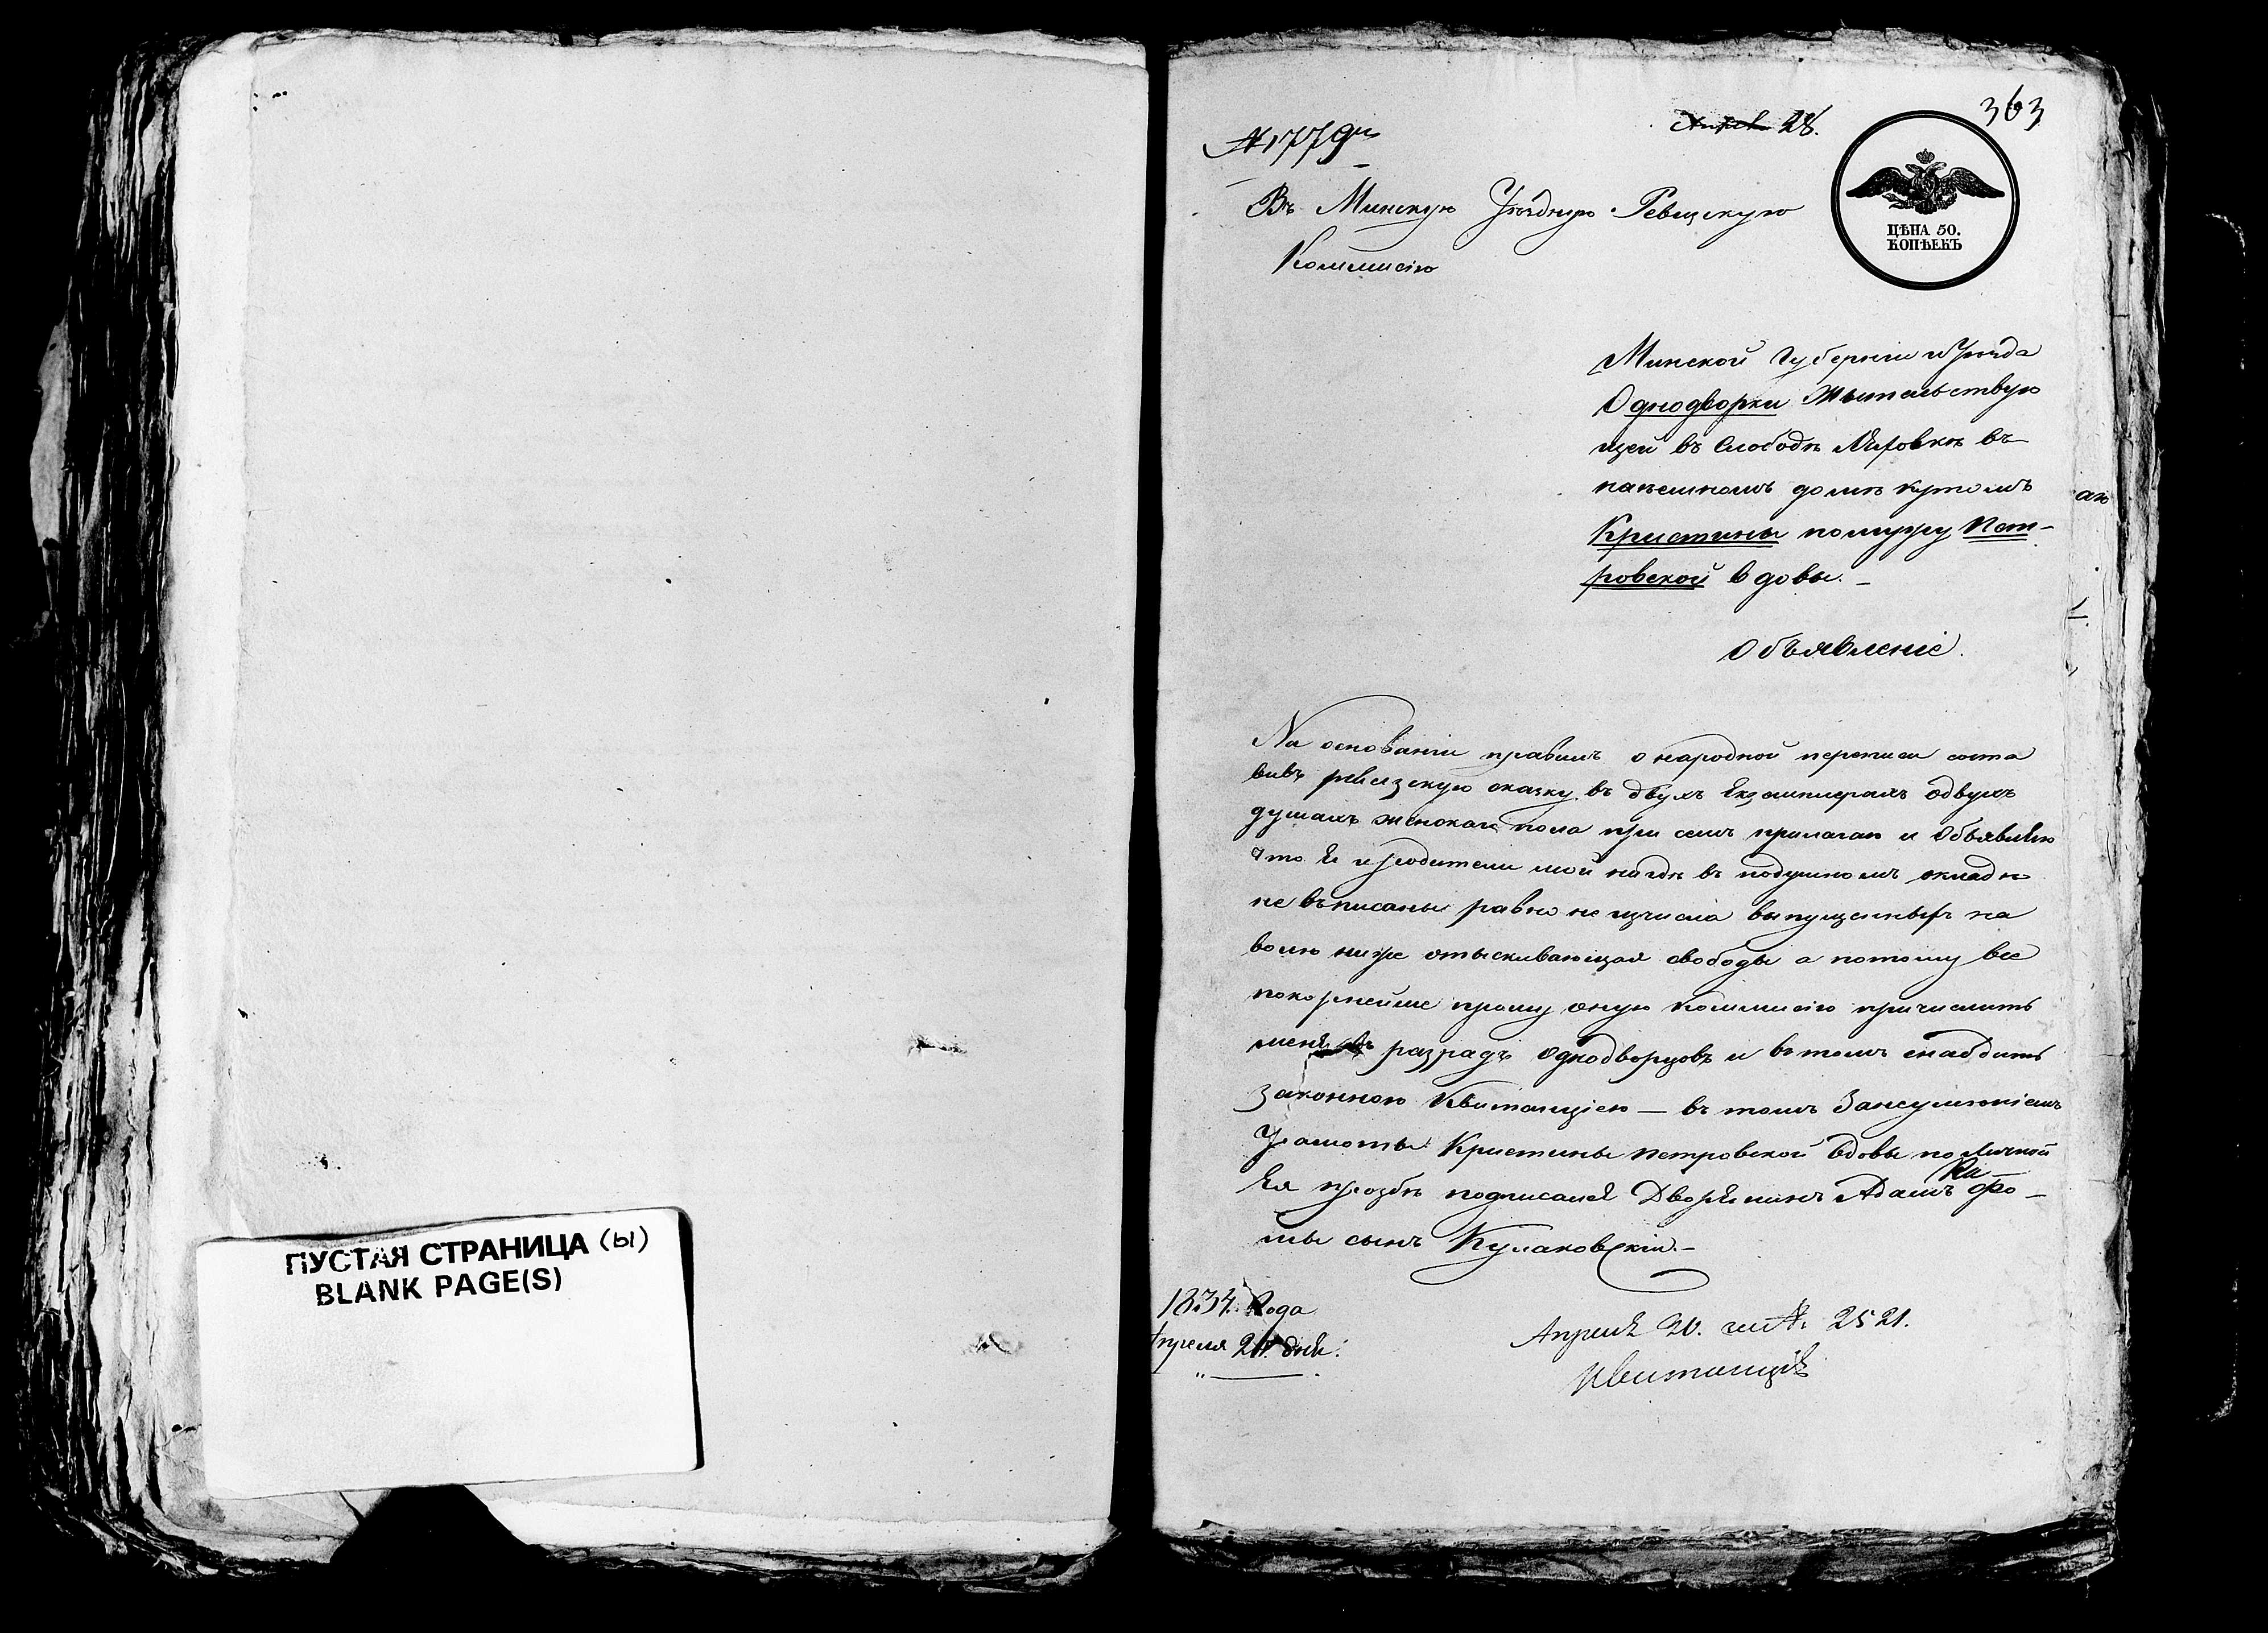 ПУСТАЯ СТРАНИЦА (ы)
BLANK PAGE(S)
363
28.
№ 1779
ЦѢНА 50.
КОПѢЕКЪ
Въ Минскую Уѣздную Ревизскую
Коммисію
Минской Губерніи и Уѣзда
Однодворки Жытельствую
щей въ Слободѣ въ
домѣ
Кристины помужу Пет-
ровской вдовы. –
Объявленіе.
На основаніи правилъ о народной переписи соста
вивъ ревизскую сказку въ двухъ Екземплерахъ одвухъ
душахъ женскаго пола при семъ прилагаю и Объявляю
что я и родители мои нигдѣ въ подушномъ окладѣ
не въписаны равно не изчисла выпущенныхъ на
волю ниже отыскивающая свободы а потому все
покорнейше прошу оную коммисію причислить
меня въ разрядъ Однодворцовъ и въ томъ снабдить
законною Квитанціею — въ томъ
Грамоты Кристины Петровской вдовы по личной
Ея прозбѣ подписался Дворянинъ Адамъ
сынъ Кулаковскій. –
1834. Года
Апреля 20. дня.
Апреля 20. № 2521.
Квитанція
аю